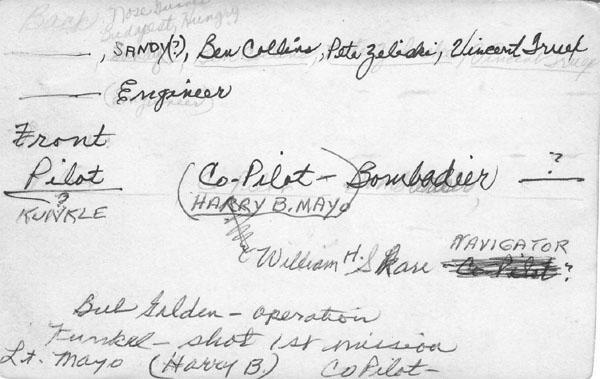 Back Nose Gunner
Budapest, Hungry
——, SANDY(?), Ben Collins, Pete Zeleski, Vincent Truex
—— Engineer
Front
Pilot (Co-Pilot — Bombadier ?
? KUNKLE HARRY B. MAYO
William H. Skare NAVIGATOR
Co Pilot ?
Bub Galden — operation
Funkel — shot 1st mission
Lt. Mayo (Harry B.) CoPilot —